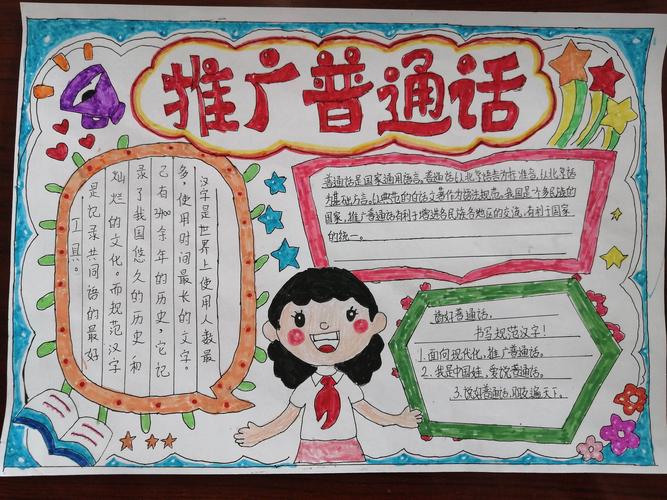 推广普通话
汉字是世界上使用人数最
多,使用时间最长的文字。
已有3400余年的历史,它记
录了我国悠久的历史和
灿烂的文化。而规范汉字
是记录共同语的最好
工具。
普通话是国家通用语言。普通话以北京语言为标准音,以北京话
为基础方言,以典范的白话文著作为语法规范。我国是个多民族的
国家,推广普通话有利于增进各民族各地区的交流,有利于国家
的统一。
说好普通话,
书写规范汉字!
1. 面向现代化,推广普通话。
2. 我是中国娃,爱说普通话。
3. 说好普通话,朋友遍天下。